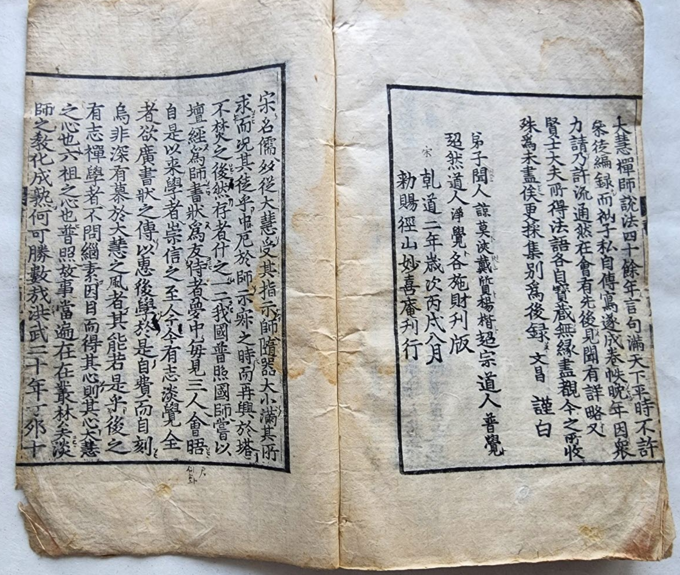 大慧禪師說法四十餘年言句滿天下平時不許
參徒編録而衲子私自傳寫遂成卷帙晚年因衆
力請乃許流通然在會有先後見聞有詳略又
賢士大夫所得法語各自寶藏無緣盡觀今之所收
殊爲未盡俟更採集別爲後録 文昌 謹白
弟子聞人 諒莫汲戴質楊楷超宗道人 普覺
超然道人淨覺各施財刊版
宋 乹道二年歲次丙戌八月
勑賜徑山妙喜庵刊行
宋名儒多從大慧受其指示師隨器大小滿其所
求而况其徒乎中厄於師示寂之時而再興於塔
不焚之後然存者什之一二我國普照國師嘗以
壇經爲師書狀爲友侍者夢中每見三人會晤
自是以來學者崇信之至人今有志淡覺全
者欲廣書狀之傳以惠後學於是自費而自刻
烏非深有慕於大慧之風者其能若是乎後之
有志禪學者不問緇素因目而得其心則其心大慧
之心也六祖之心也普照故事當遍在在叢林矣淡
師之教化成熟何可勝數哉洪武二十年丁夘十